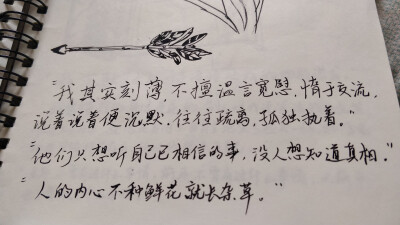 "我其实刻薄,不擅温言宽慰,惰于交流,
说着说着便沉默,往往疏离,孤独执着。"
"他们只想听自己已相信的事,没人想知道真相。"
"人的内心不种鲜花就长杂草。"